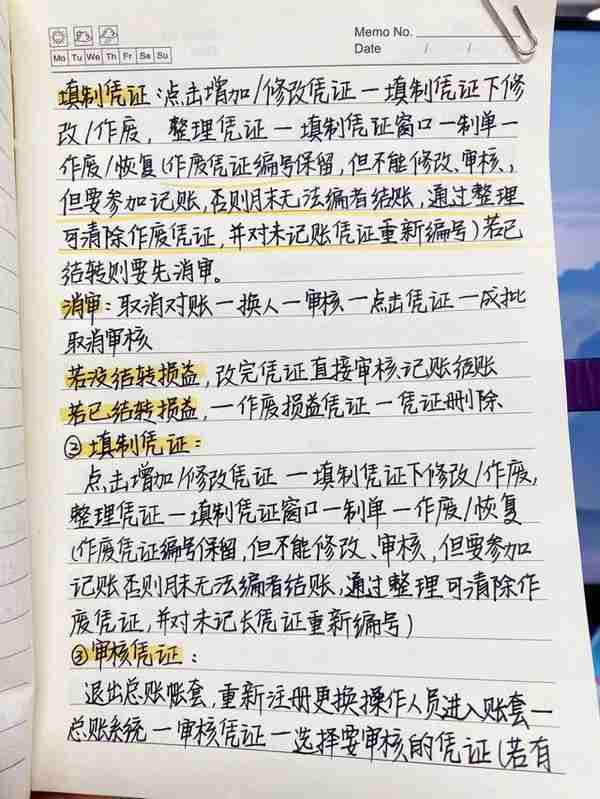 Memo No.
Mo Tu We Th Fr Sa Su
Date / /
填制凭证:点击增加/修改凭证一填制凭证下修
改/作废,整理凭证一填制凭证窗口一制单一
作废/恢复(作废凭证编号保留,但不能修改、审核,
但要参加记账,否则月末无法编者结账,通过整理
可清除作废凭证,并对未记账凭证重新编号)若已
结转则要先消审。
消审:取消对账一换人一审核一点击凭证一成批
取消审核
若没结转损益,改完凭证直接审核记账结账
若已结转损益,一作废损益凭证一凭证删除
②填制凭证:
点击增加/修改凭证一填制凭证下修改/作废,
整理凭证一填制凭证窗口一制单一作废/恢复
(作废凭证编号保留,但不能修改、审核,但要参加
记账否则月末无法编者结账,通过整理可清除作
废凭证,并对未记长凭证重新编号)
③审核凭证:
退出总账帐套,重新注册更换操作人员进入账套一
总账系统一审核凭证一选择要审核的凭证(若有